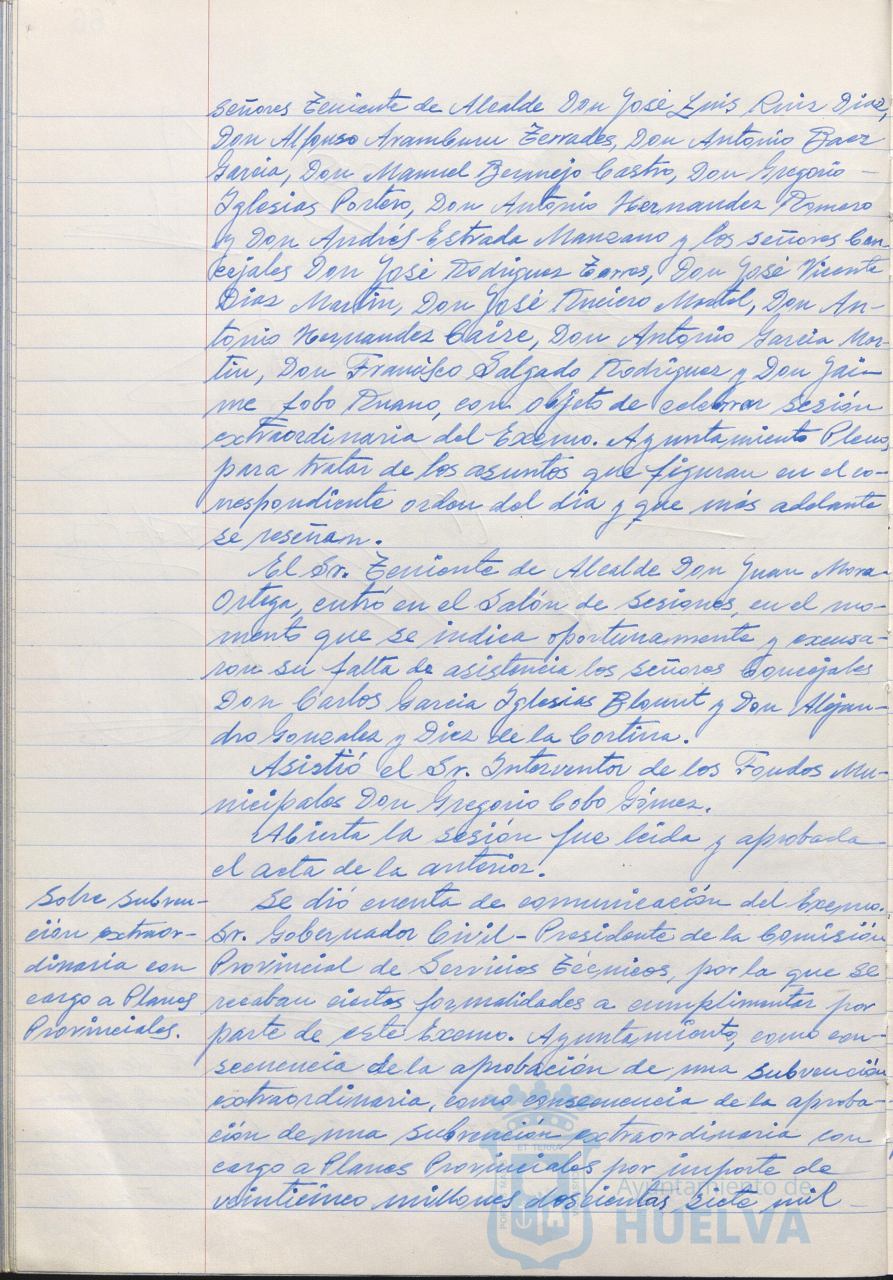 señores Teniente de Alcalde Don José Luis Ruiz Díaz,
Don Alfonso Aramburu Terrades, Don Antonio Baez
Garcia, Don Manuel Bermejo Castro, Don Gregorio -
Iglesias Portero, Don Antonio Hernandez Romero
y Don Andrés Estrada Manzano y los señores Con-
cejales Don José Rodriguez Don José Vicente
Diaz Martin, Don José Don An-
tonio Hernandez Don Antonio Garcia Mar-
tin, Don Francisco Salgado Rodriguez y Don Jai-
me Lobo Ruano, con objeto de celebrar sesión
extraordinaria del Excmo. Ayuntamiento Pleno,
para tratar de los asuntos que figuran en el co-
rrespondiente orden del dia y que más adelante
se reseñan.
El Sr. Teniente de Alcalde Don Juan Mora
Ortega, entró en el Salón de sesiones, en el mo-
mento que se indica oportunamente y excusa-
ron su falta de asistencia los señores Concejales
Don Carlos Garcia Iglesias Blount y Don Alejan-
dro Gonzalez y Diez de la Cortina.
Asistió el Sr. Interventor de los Fondos Mu-
nicipales Don Gregorio Cobo Gómez.
Abierta la sesión fue leida y aprobada
el acta de la anterior.
Sobre subven-
ción extraor-
dinaria con
cargo a Planes
Provinciales.
Se dió cuenta de comunicación del Excmo.
Sr. Gobernador Civil-Presidente de la Comisión
Provincial de Servicios Técnicos, por la que se
recaban ciertas formalidades a cumplimentar por
parte de este Excmo. Ayuntamiento, como con-
secuencia de la aprobación de una subvención
extraordinaria, como consecuencia de la aproba-
ción de una subvención extraordinaria con
cargo a Planes Provinciales por importe de
veinticinco millones doscientas siete mil -
Ayuntamiento de
HUELVA